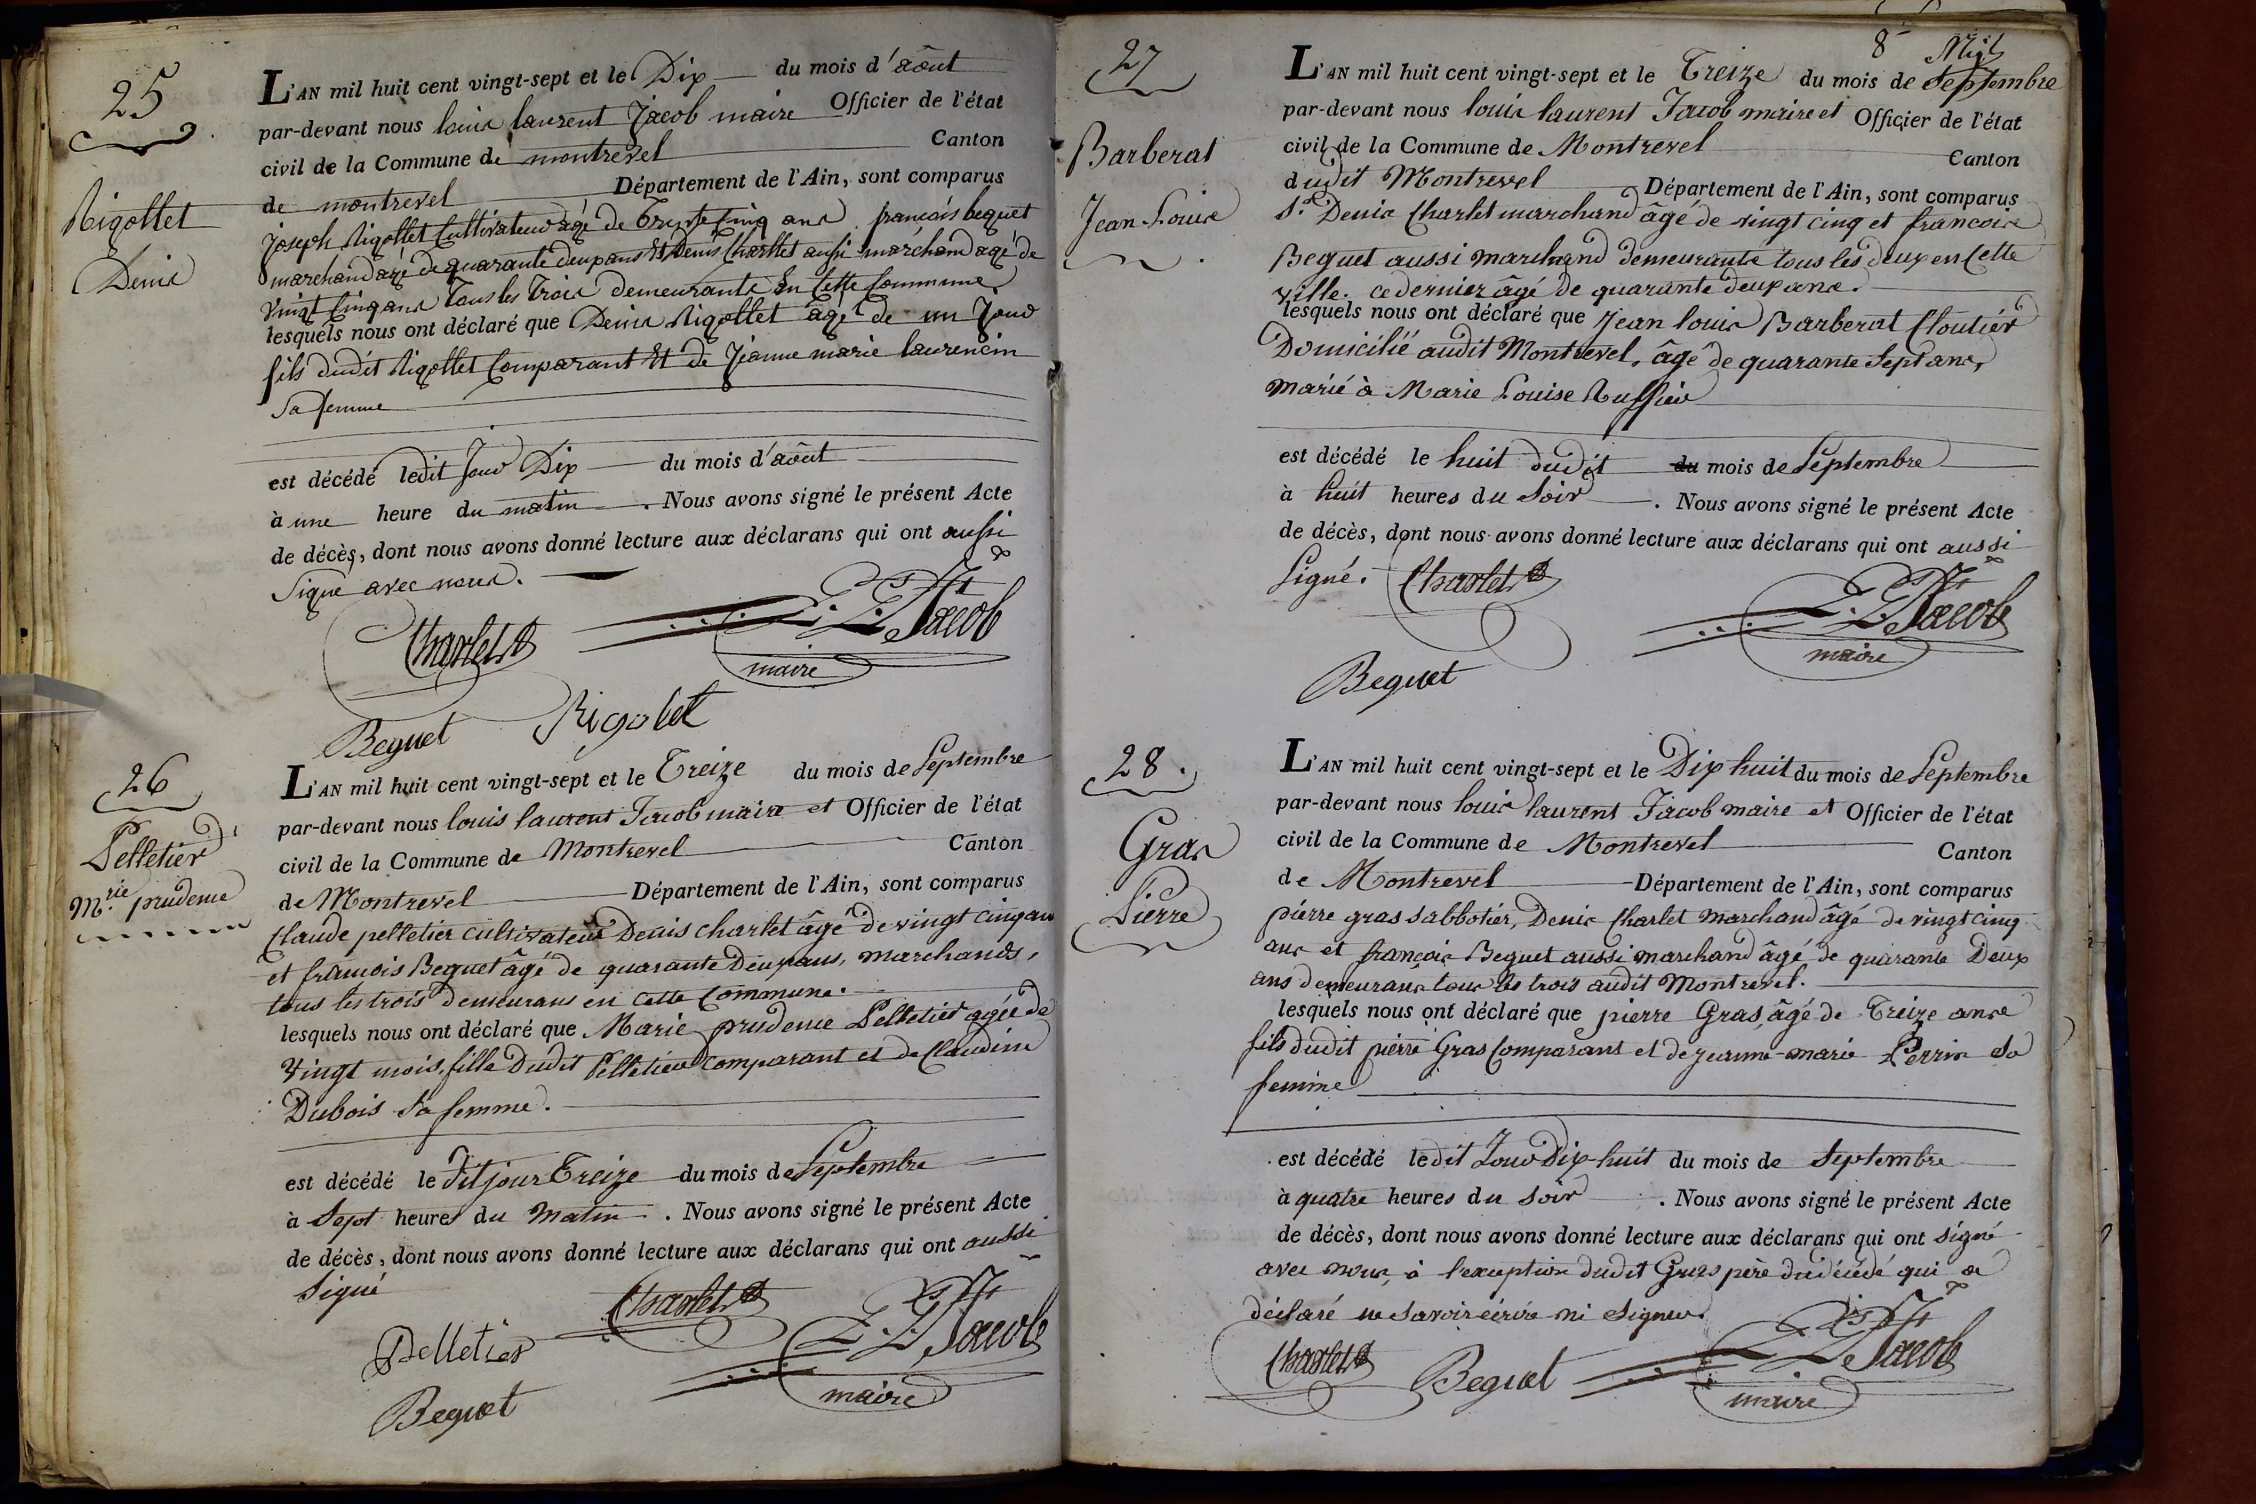 25
Rigollet
Denis
L'AN mil huit cent vingt-sept et le Dix du mois d'août
par-devant nous louis laurent Jacob maire Officier de l'état
civil de la Commune de montrevel Canton
de montrevel Département de l'Ain, sont comparus
joseph Rigollet Cultivateur agé de Trente Cinq ans françois bequet
marchand agé de quarante deux ans Et Denis Charlet aussi marchand agé de
vingt Cinq ans Tous les Trois demeurants En Cette Commune
lesquels nous ont déclaré que Denis Rigollet agé de un Jour
fils dudit Rigollet Comparant Et de Jeanne marie laurencin
Sa femme
est décédé ledit Jour Dix du mois d'août
à une heure du matin. Nous avons signé le présent Acte
de décès, dont nous avons donné lecture aux déclarans qui ont aussi
Signé avec nous.
Charlet
L. Lt Jacob
maire
Beguet Rigolet
26
Pelletier
Mrie prudence
L'AN mil huit cent vingt-sept et le Treize du mois de Septembre
par-devant nous louis laurent Jacob maire et Officier de l'état
civil de la Commune de Montrevel Canton
de Montrevel Département de l'Ain, sont comparus
Claude pelletier cultivateur Denis charlet âgé de vingt cinq ans
et francois Beguet âgé de quarante Deux ans, marchands,
tous les trois demeurans en cette Commune.
lesquels nous ont déclaré que Marie prudence Pelletier agée de
vingt mois, fille Dudit Pelletier comparant et de Claudine
Dubois Sa femme.
est décédé le dit jour Treize du mois de Septembre
à Sept heures du Matin. Nous avons signé le présent Acte
de décès, dont nous avons donné lecture aux déclarans qui ont aussi
Signé
Charlet
L. Lt Jacob
maire
Pelletier
Beguet
8
27
Barberat
Jean Louis
L'AN mil huit cent vingt-sept et le Treize du mois de Septembre
par-devant nous louis laurent Jacob maire et Officier de l'état
civil de la Commune de Montrevel Canton
dudit Montrevel Département de l'Ain, sont comparus
Sr. Denis Charlet marchand âgé de vingt cinq et francois
Beguet aussi marchand demeurants tous les deux en Cette
ville. ce dernier âgé de quarante deux ans.
lesquels nous ont déclaré que Jean louis Barberat Cloutier
Domicilié audit Montrevel, âgé de quarante Sept ans,
marié à Marie Louise Ruffieu
est décédé le huit dudit du mois de Septembre
à huit heures du Soir. Nous avons signé le présent Acte
de décès, dont nous avons donné lecture aux déclarans qui ont aussi
Signé. Charlet
L. Lt Jacob
maire
Beguet
28.
Gras
Pierre
L'AN mil huit cent vingt-sept et le Dix huit du mois de Septembre
par-devant nous louis laurent Jacob maire et Officier de l'état
civil de la Commune de Montrevel Canton
de Montrevel Département de l'Ain, sont comparus
pierre gras sabbotier, Denis Charlet Marchand âgé de vingt cinq
ans et françois Beguet aussi marchand âgé de quarante Deux
ans demeurans tous les trois audit Montrevel.
lesquels nous ont déclaré que pierre Gras, âgé de Treize ans
fils dudit pierre Gras Comparant et de jeanne-marie Perrin Sa
femme
est décédé ledit Jour Dix-huit du mois de Septembre
à quatre heures du Soir. Nous avons signé le présent Acte
de décès, dont nous avons donné lecture aux déclarans qui ont signé
avec nous, à l'exception dudit Gras père du décédé qui a
déclaré ne savoir écrire ni signer.
Charlet Beguet
L. Lt Jacob
maire